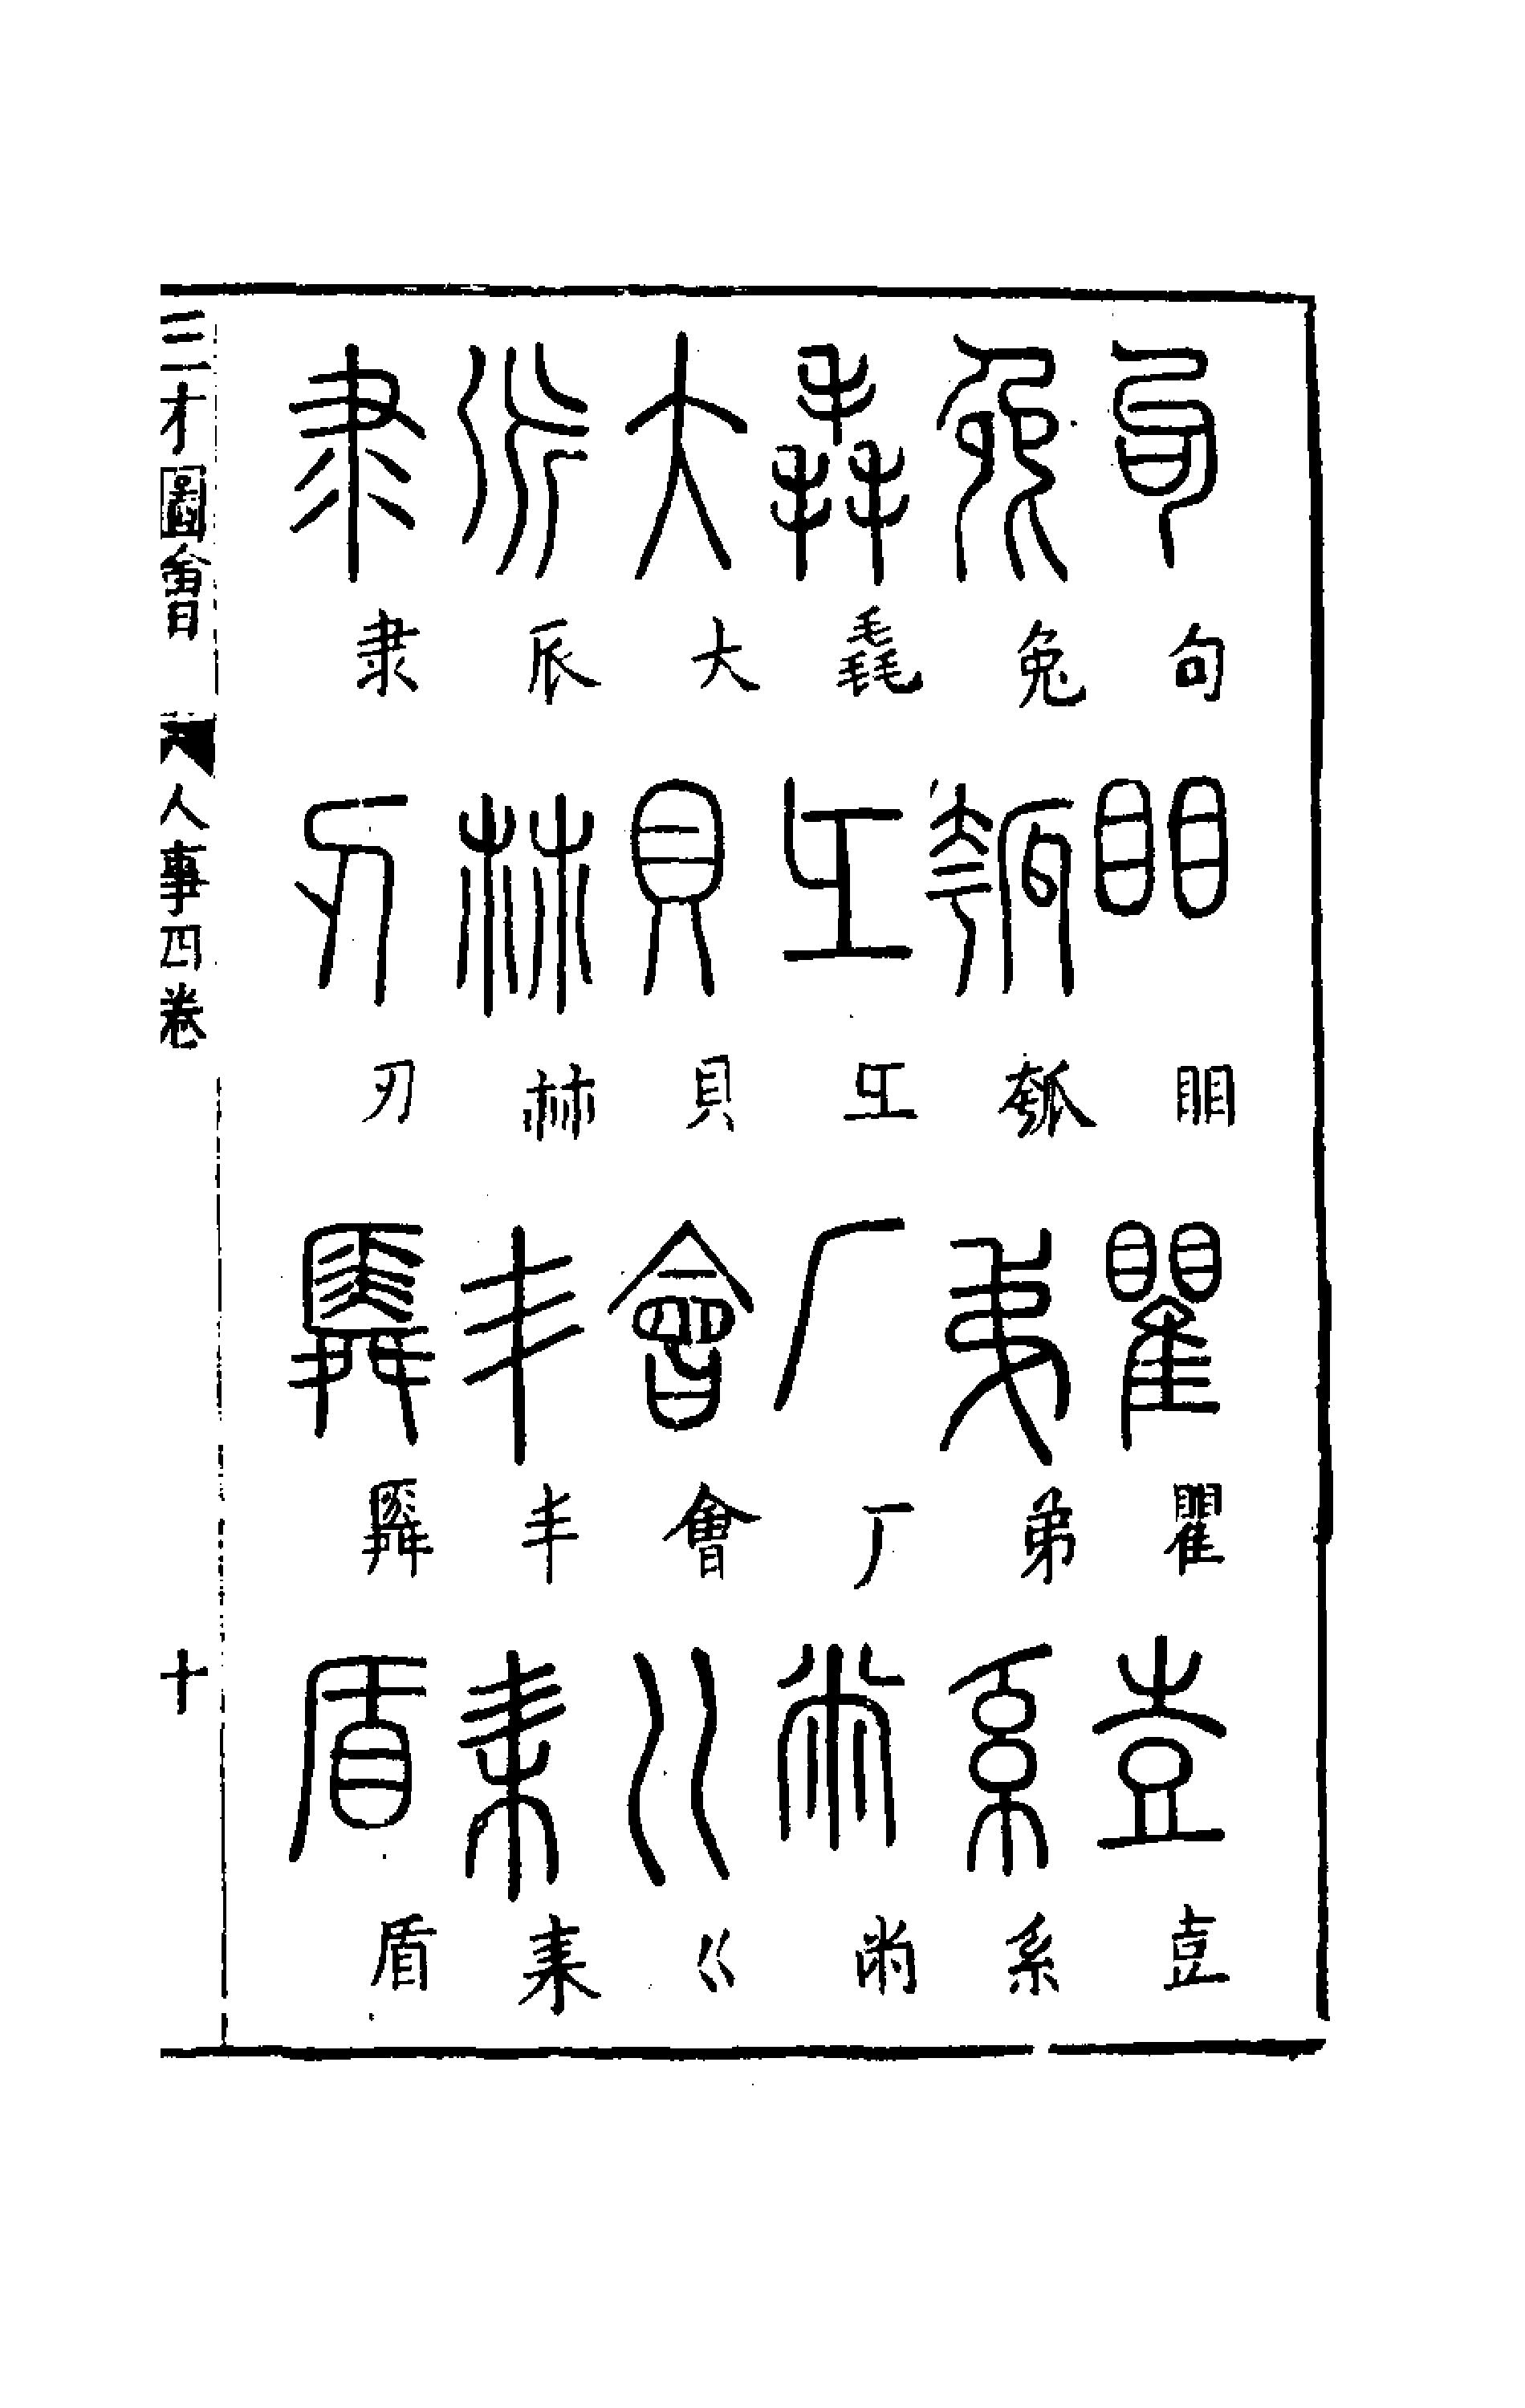 句 䀠 瞿 壴
兔 瓠 弟 系
毳 厂 㡀
大 貝 會 巜
𠂢 𣏟 丯 耒
隶 刃 盾
三才圖會 人事四卷 十